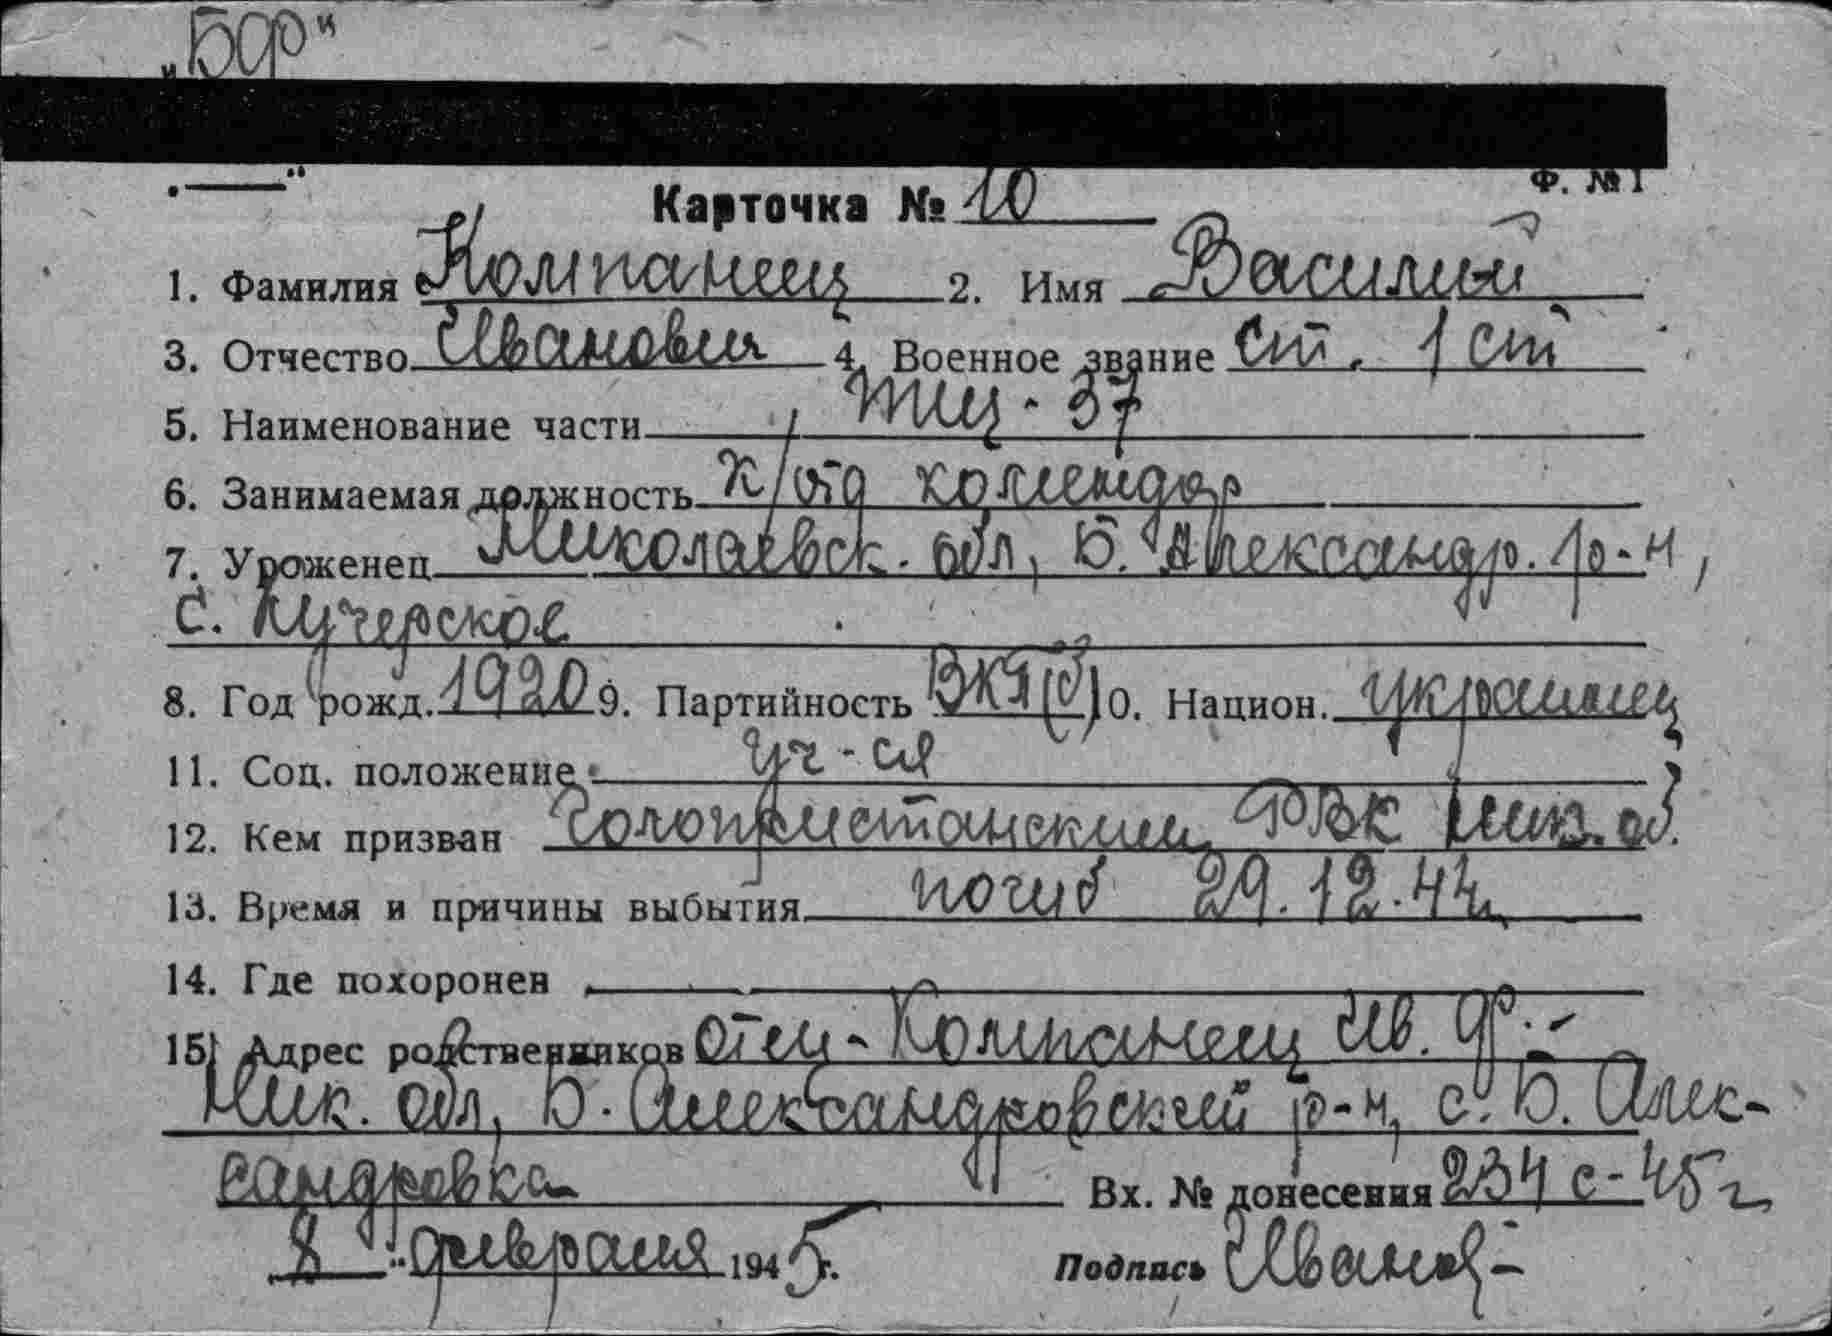 „БФ"
Ф. № 1
Карточка № 10
1. Фамилия Компанеец 2. Имя Василий
3. Отчество Иванович 4. Военное звание ст. 1 ст
5. Наименование части ТЩ-37
6. Занимаемая должность к/отд комендор
7. Уроженец Николаевск. обл, Б. Александр. р-н,
с. Кучерское
8. Год рожд. 1920 9. Партийность ВКП(б) 10. Национ. украинец
11. Соц. положение уч-ся
12. Кем призван Голопристанским РВК Ник. об.
13. Время и причины выбытия погиб 29.12.44г.
14. Где похоронен
15. Адрес родственников отец - Компанеец Ив. Ф. -
Ник. обл, Б. Александровский р-н, с. Б. Алек-
сандровка Вх. № донесения 234 с-45г
8 " февраля 1945 г. Подпись Иванов